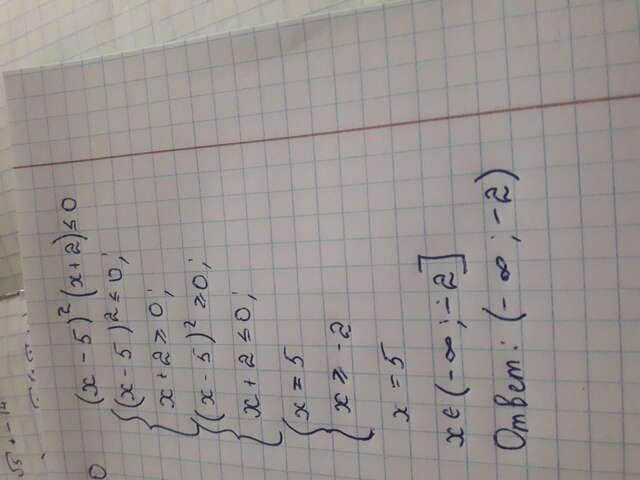 √5 · -14
0 (x - 5)² (x + 2) ≤ 0
{ (x - 5)² ≤ 0;
x + 2 ≥ 0;
{ (x - 5)² ≥ 0;
x + 2 ≤ 0;
{ x = 5
x ≥ -2
x = 5
x ∈ (-∞; -2]
Ответ: (-∞; -2)